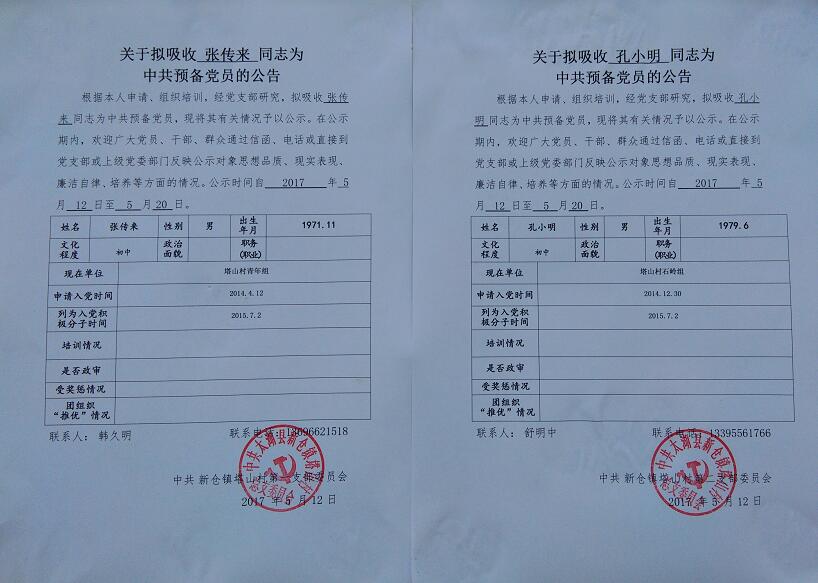 关于拟吸收 张传来 同志为
中共预备党员的公告
根据本人申请、组织培训，经党支部研究，拟吸收 张传
来 同志为中共预备党员，现将其有关情况予以公示。在公示
期内，欢迎广大党员、干部、群众通过信函、电话或直接到
党支部或上级党委部门反映公示对象思想品质、现实表现、
廉洁自律、培养等方面的情况。公示时间自 2017 年 5
月 12 日至 5 月 20 日。
姓名 张传来 性别 男 出生年月 1971.11
文化程度 初中 政治面貌 职务(职业)
现在单位 塔山村青年组
申请入党时间 2014.4.12
列为入党积极分子时间 2015.7.2
培训情况
是否政审
受奖惩情况
团组织“推优”情况
联系人： 韩久明 联系电话：13096621518
中共 新仓镇塔山村第二支部委员会
2017 年 5 月 12 日
中共太湖县新仓镇塔山村
总支委员会
关于拟吸收 孔小明 同志为
中共预备党员的公告
根据本人申请、组织培训，经党支部研究，拟吸收 孔小
明 同志为中共预备党员，现将其有关情况予以公示。在公示
期内，欢迎广大党员、干部、群众通过信函、电话或直接到
党支部或上级党委部门反映公示对象思想品质、现实表现、
廉洁自律、培养等方面的情况。公示时间自 2017 年 5
月 12 日至 5 月 20 日。
姓名 孔小明 性别 男 出生年月 1979.6
文化程度 初中 政治面貌 职务(职业)
现在单位 塔山村石岭组
申请入党时间 2014.12.30
列为入党积极分子时间 2015.7.2
培训情况
是否政审
受奖惩情况
团组织“推优”情况
联系人： 舒明中 联系电话：13395561766
中共 新仓镇塔山村第二支部委员会
2017 年 5 月 12 日
中共太湖县新仓镇塔山村
总支委员会